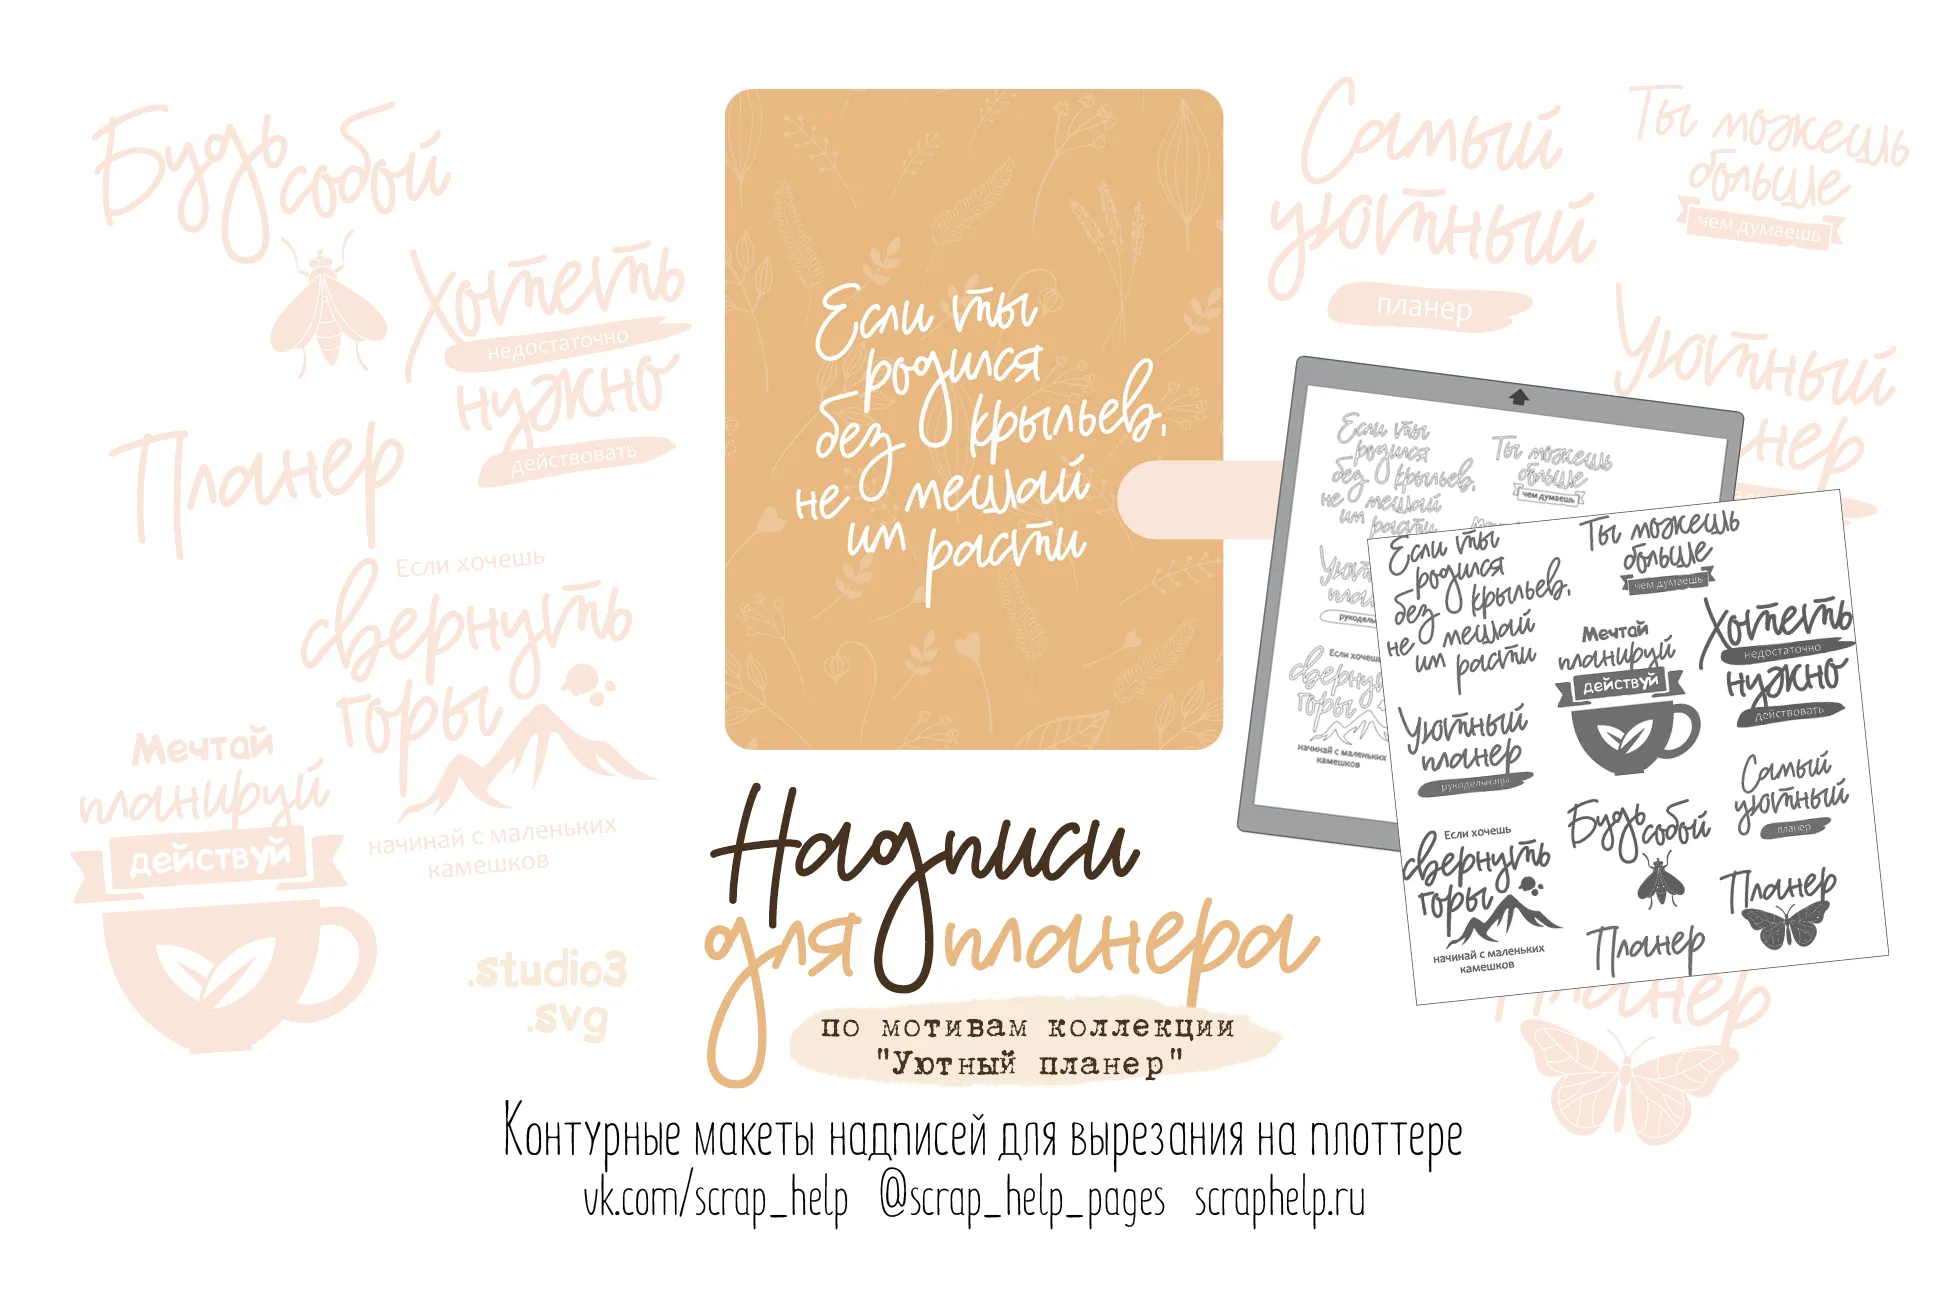 Будь
собой
Хотеть
недостаточно
нужно
действовать
Планер
Если хочешь
свернуть
горы
начинай с маленьких
камешков
Мечтай
планируй
действуй
.studio3
.svg
Если ты
родился
без крыльев,
не мешай
им расти
Самый
уютный
планер
Ты можешь
больше
чем думаешь
Уютный
Планер
Если ты
родился
без крыльев,
не мешай
им расти
Ты можешь
больше
чем думаешь
Если хочешь
свернуть
горы
начинай с маленьких
камешков
Если ты
родился
без крыльев,
не мешай
им расти
Ты можешь
больше
чем думаешь
Мечтай
планируй
действуй
Хотеть
недостаточно
нужно
действовать
Уютный
планер
рукодельницы
Самый
уютный
планер
Будь
собой
Если хочешь
свернуть
горы
начинай с маленьких
камешков
Планер
Планер
Надписи
для планера
по мотивам коллекции
"Уютный планер"
Контурные макеты надписей для вырезания на плоттере
vk.com/scrap_help @scrap_help_pages scraphelp.ru